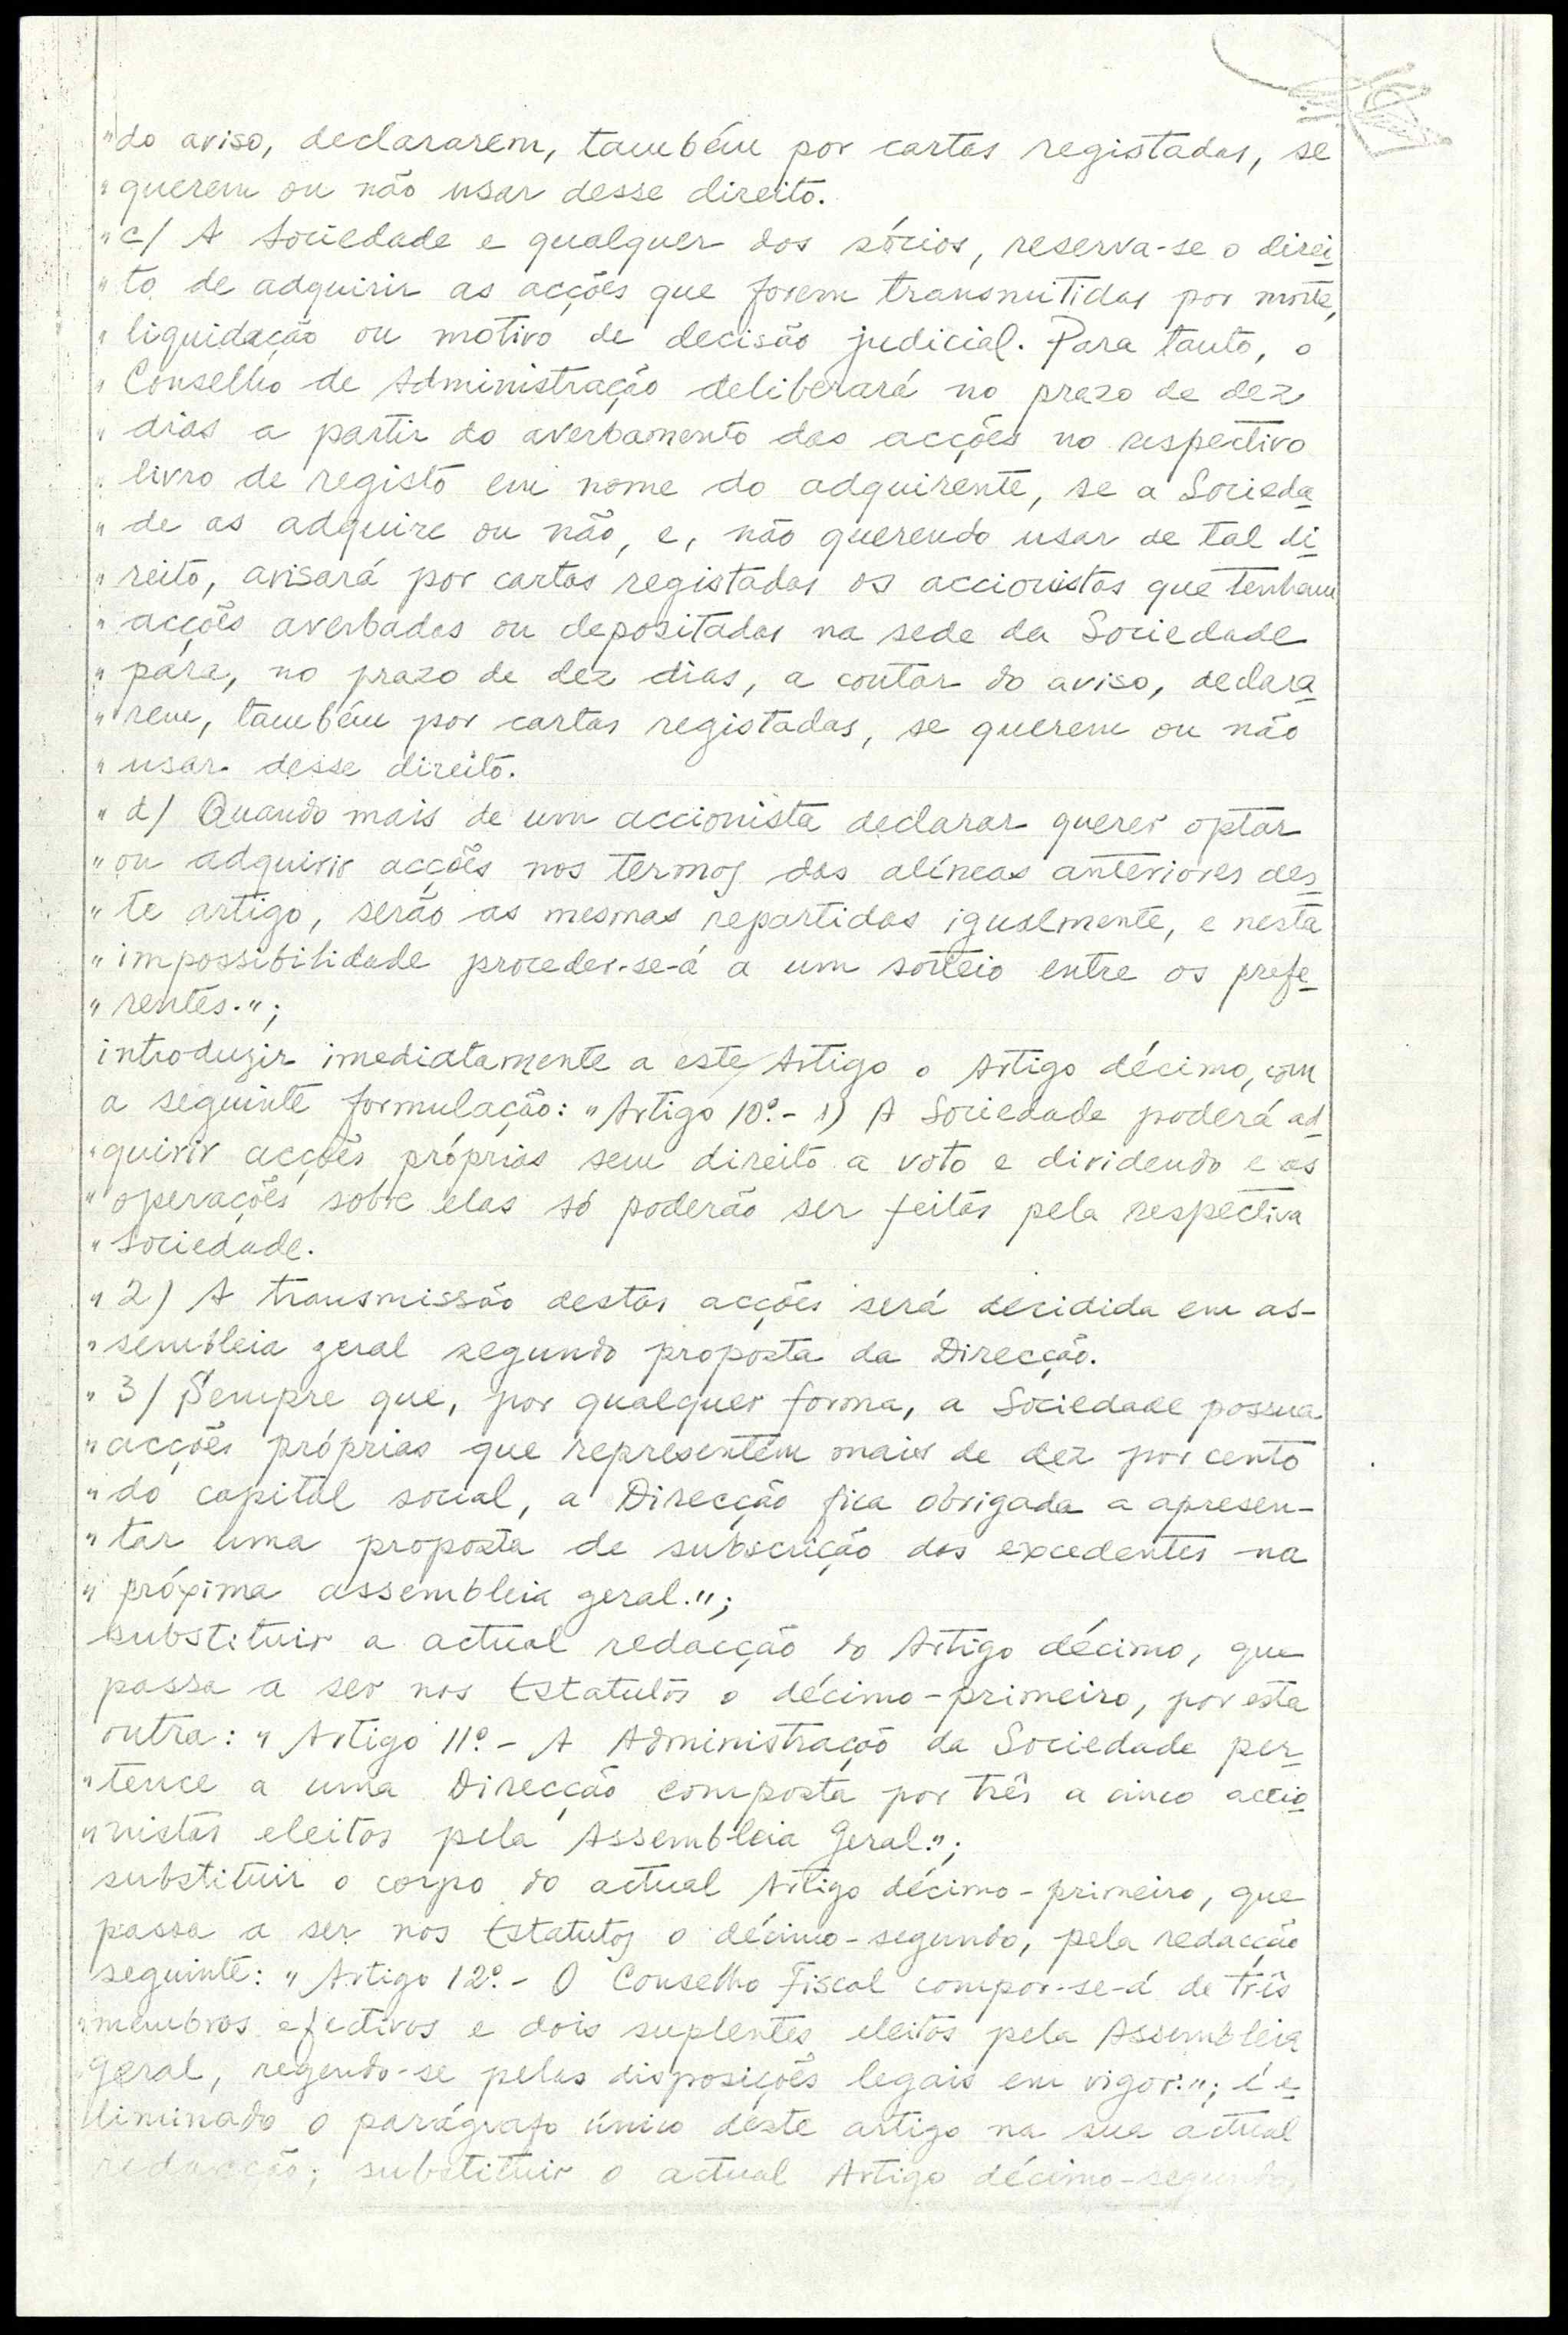 "do aviso, declararem, também por cartas registadas, se
"querem ou não usar desse direito.
"c/ A Sociedade e qualquer dos sócios, reserva-se o direi
"to de adquirir as acções que forem transmitidas por morte,
"liquidação ou motivo de decisão judicial. Para tanto, o
"Conselho de Administração deliberará no prazo de dez
"dias a partir do averbamento das acções no respectivo
"livro de registo em nome do adquirente, se a Socieda
"de as adquire ou não, e, não querendo usar de tal di
"reito, avisará por cartas registadas os accionistas que tenham
"acções averbadas ou depositadas na sede da Sociedade
"para, no prazo de dez dias, a contar do aviso, declara
"rem, também por cartas registadas, se querem ou não
"usar desse direito.
"d/ Quando mais de um accionista declarar querer optar
"ou adquirir acções nos termos das alíneas anteriores des
"te artigo, serão as mesmas repartidas igualmente, e nesta
"impossibilidade proceder-se-á a um sorteio entre os prefe
"rentes.";
introduzir imediatamente a este Artigo o Artigo décimo, com
a seguinte formulação: "Artigo 10º.- 1) A Sociedade poderá ad
"quirir acções próprias sem direito a voto e dividendo e as
"operações sobre elas só poderão ser feitas pela respectiva
"Sociedade.
"2) A transmissão destas acções será decidida em as-
"sembleia geral segundo proposta da Direcção.
"3/ Sempre que, por qualquer forma, a Sociedade possua
"acções próprias que representem mais de dez por cento
"do capital social, a Direcção fica obrigada a apresen-
"tar uma proposta de subscrição dos excedentes na
"próxima assembleia geral.";
substituir a actual redacção do Artigo décimo, que
passa a ser nos Estatutos o décimo-primeiro, por esta
outra: "Artigo 11º.- A Administração da Sociedade per
"tence a uma Direcção composta por três a cinco accio
"nistas eleitos pela Assembleia Geral.";
substituir o corpo do actual Artigo décimo-primeiro, que
passa a ser nos Estatutos o décimo-segundo, pela redacção
seguinte: "Artigo 12º.- O Conselho Fiscal compor-se-á de três
"membros efectivos e dois suplentes eleitos pela Assembleia
Geral, regendo-se pelas disposições legais em vigor."; é e
liminado o parágrafo único deste artigo na sua actual
redacção; substituir o actual Artigo décimo-segundo,